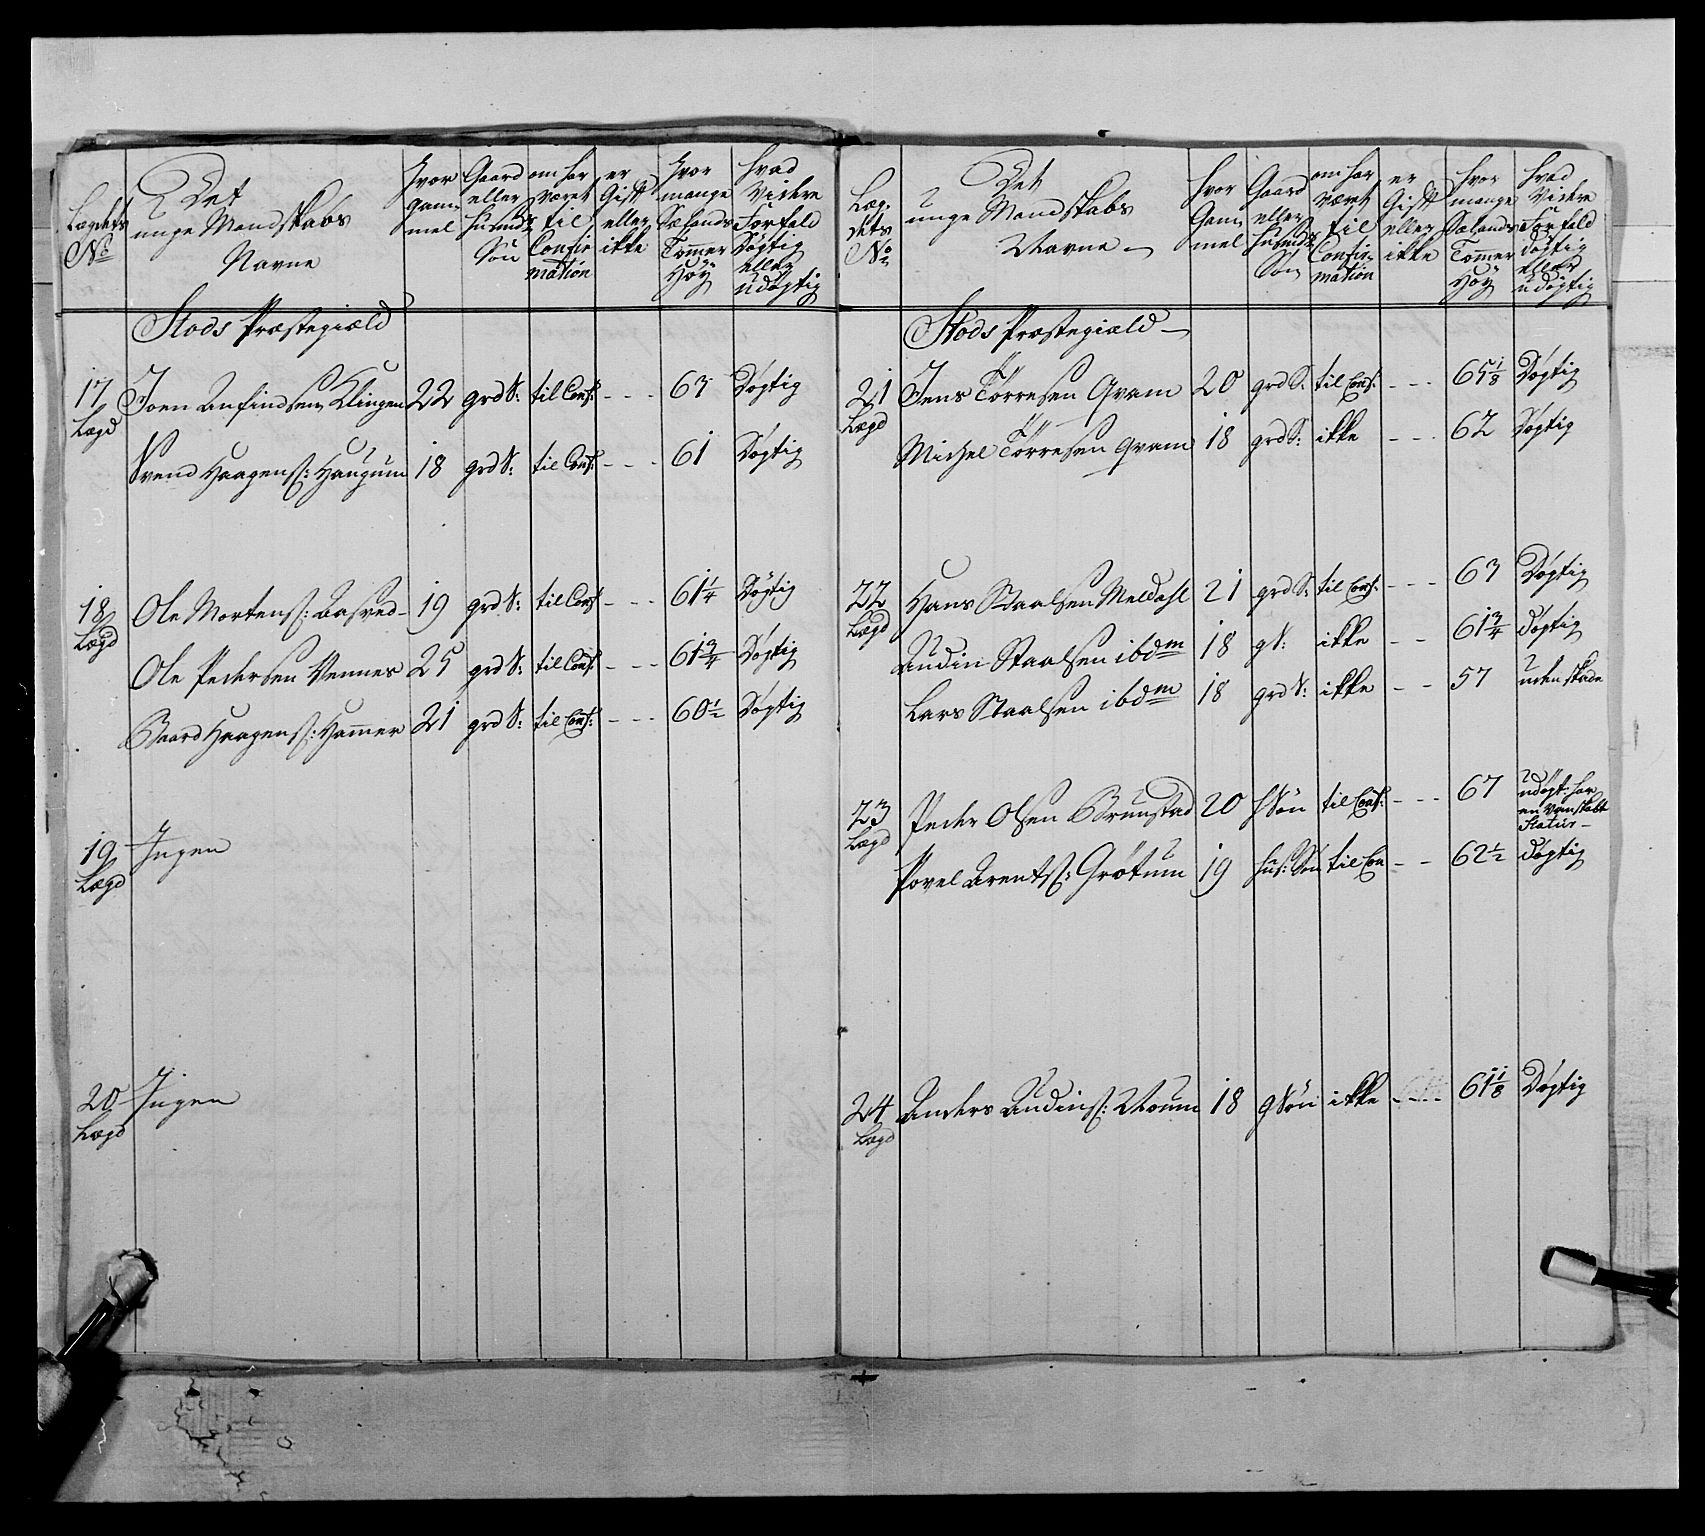 Lægdets No | Det unge Mandskabs Navne | Hvor gammel | Gaard eller Husmds Søn | om har været til Confirmation | er Gift eller ikke | Hvor mange Sælands Tommer Høÿ | Hvad Videre Forfald Døgtig eller udøgtig
Stods Præstegiæld
17 Lægd | Joen Anfindsen Klingen | 22 | grd S: | til Conf: | - - - | 63 | Døgtig
Svend Haagens: Haugum | 18 | grd S: | til Conf: | - - - | 61 | Døgtig
18 Lægd | Ole Mortens: | 19 | grd S: | til Conf | - - - | 61 1/4 | Døgtig
Ole Pedersen Vennes | 25 | grd S: | til Conf: | - - - | 61 3/4 | Døgtig
Baard Haagens: Hammer | 21 | grd S: | til Conf: | - - - | 60 1/2 | Døgtig
19 Lægd | Ingen
20 Lægd | Ingen
Lægdets No | Det unge Mandskabs Navne | Hvor Gammel | Gaard eller Husmds Søn | om har været til Confirmation | er Gift eller ikke | Hvor mange Sælands Tommer Høÿ | Hvad Videre Forfald døgtig eller udøgtig
Stods Præstegiæld
21 Lægd | Jens Törresen Qvam | 20 | grd S: | til Conf: | - - - | 65 1/8 | Døgtig
Michel Törresen Qvam | 18 | grd S: | ikke | - - - | 62 | Døgtig
22 Lægd | Hans Staalsen Meldahl | 21 | grd S: | til Conf: | - - - | 63 | Døgtig
Audin Staalsen ibdm | 18 | g S: | ikke | - - | 61 3/4 | døgtig
Lars Staalsen ibdm | 18 | grd S: | ikke | - - | 57 | uden skade
23 Lægd | Peder Olsen Brunstad | 20 | h Søn | til Conf: | - - - | 67 | udøgt: har en vanskabt Statur
Povel Arents: Grötum | 19 | hus: Søn | til Con | - - | 62 1/2 | døgtig
24 Lægd | Anders Audins: | 18 | g Søn | ikke | - - - | 61 1/8 | Døgtig